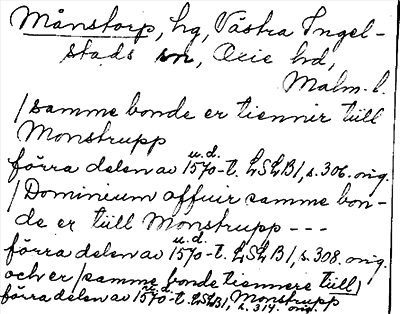 Månstorp, hg, Västra Ingel-
stads sn, Oxie hd,
Malm. l.
/samme bonde er tiennir tiill
Monstrupp
u.d.
förra delen av 1570-t. LSLB1, s. 306. orig.
/Dominium offuir samme bon-
de er tiill Monstrupp ---
u.d.
förra delen av 1570-t. LSLB1, s. 308. orig.
och er /samme bonde tiennere tiill/
u.d. Monstrupp
förra delen av 1570-t. LSLB1, s. 314. orig.